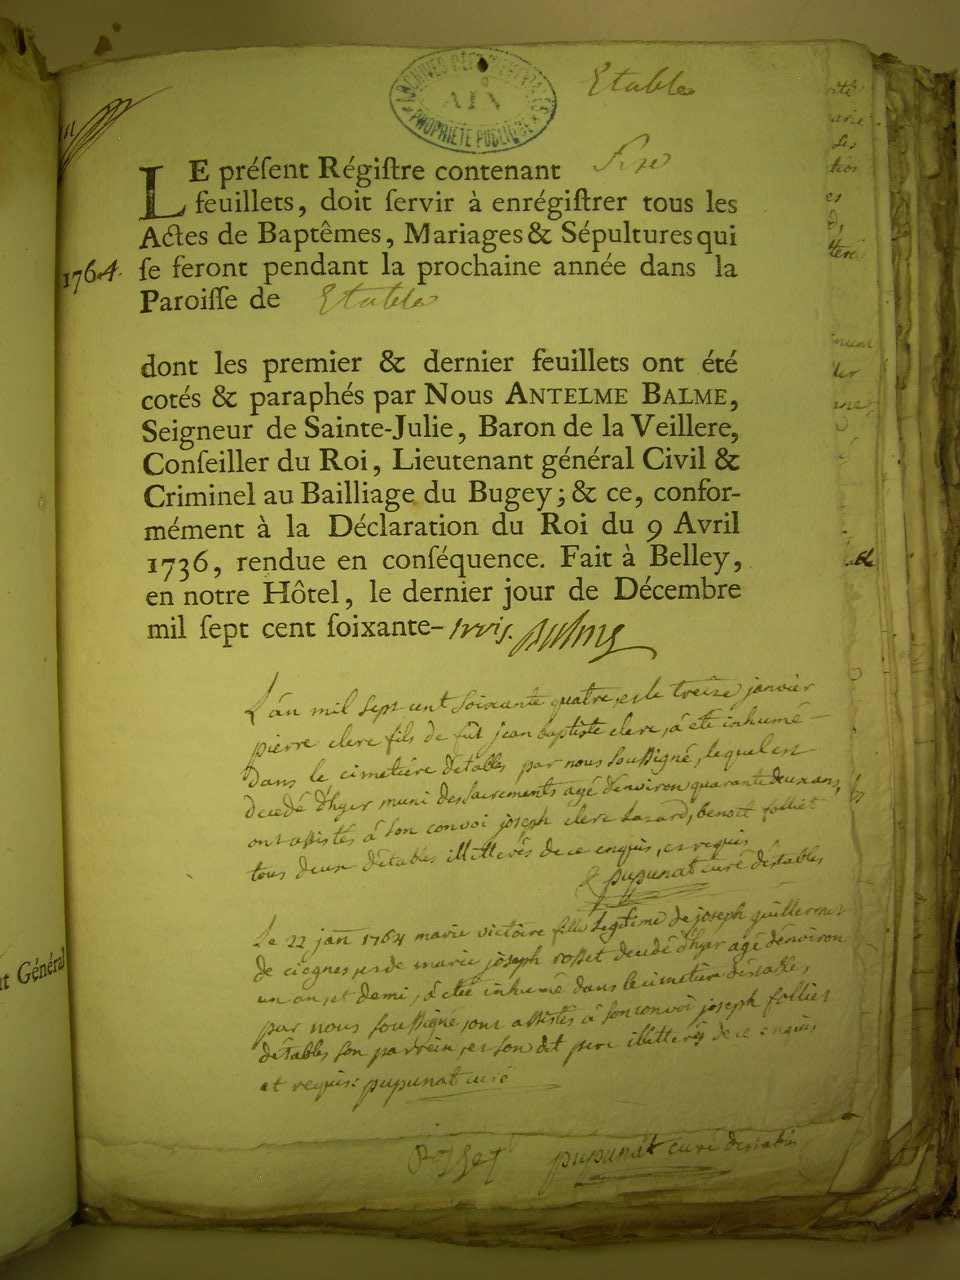 ARCHIVES DEP
AIX
PROPRIETE PUBLIQUE
Etable
LE préſent Régiſtre contenant Six
feuillets, doit ſervir à enrégiſtrer tous les
Actes de Baptêmes, Mariages & Sépultures qui
1764. ſe feront pendant la prochaine année dans la
Paroiſſe de Etable
dont les premier & dernier feuillets ont été
cotés & paraphés par Nous ANTELME BALME,
Seigneur de Sainte-Julie, Baron de la Veillere,
Conſeiller du Roi, Lieutenant général Civil &
Criminel au Bailliage du Bugey; & ce, confor-
mément à la Déclaration du Roi du 9 Avril
1736, rendue en conſéquence. Fait à Belley,
en notre Hôtel, le dernier jour de Décembre
mil ſept cent ſoixante-trois. Balme
L'an mil sept cent soixante quatre, et le treize janvier
pierre clerc fils de fût jean baptiste clerc, a eté inhumé
Dans le cimetiére détables par nous soussigné, lequel est
decedé d'hyer muni des sacrements agé d'environ quarante deux ans,
ont assistés à son convoi joseph clerc hazard, benoit folliet
tous deux d'étables illitterés de ce enquis, et requis
pupunat curé d'étables
Le 22 jan 1764 marie victoire fille legitime de joseph guillermet
de ciegnes et de marie joseph rosset decedé d'hyer agé d'environ
un an, et demi, à etée inhumé dans le cimetiére d'étables,
par nous soussigné, ont assistés à son convoi joseph folliet
détables son parrein, et son dit pere illitterés de ce enquis
et requis: pupunat curé
Rosset pupunat curé destables
nt Général